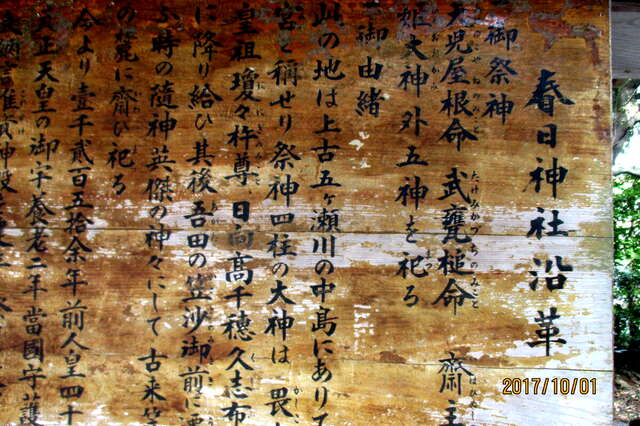 春日神社沿革
御祭神
天児屋根命 武甕槌命 齋主
姫大神外五神を祀る
御由緒
此の地は上古五ヶ瀬川の中島にありて
宮と稱せり祭神四柱の大神は 畏
皇祖 瓊々杵尊 日向高千穂久志布
に降り給ひ其後吾田の笠沙御前に
る時の隨神英傑の神々にして古来
の麓に齋ひ祀る
今より壹千貳百五拾余年前人皇四十
天正天皇の御宇養老二年當國守護
2017/10/01